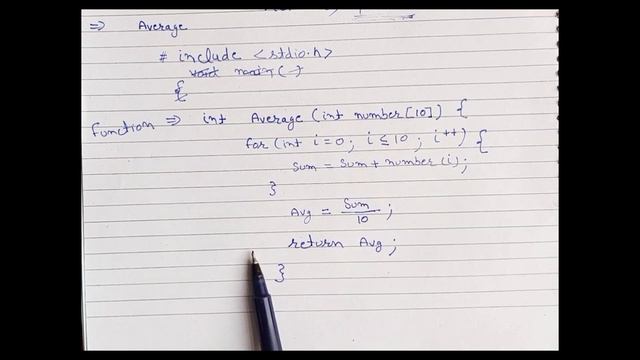 ⇒ Average
# include <stdio.h>
void main()
{
Function ⇒ int Average (int number[10]) {
for (int i=0; i≤10; i++) {
Sum = Sum + number(i);
}
Avg = Sum/10;
return Avg;
}